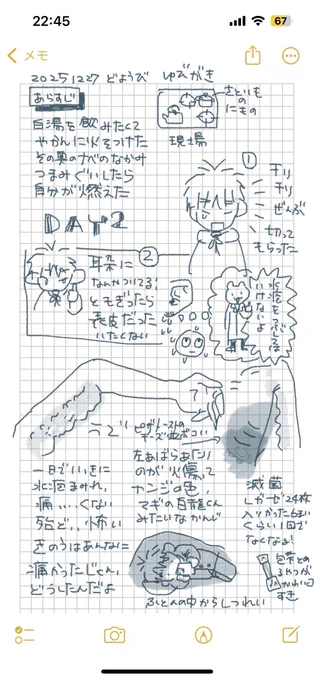 22:45
67
メモ
20251227 どようび ゆびがき
あらすじ
さといも
の
にもの
現場
白湯を飲みたくて
やかんに火をつけた
その奥のなべのなかみ
つまみぐいしたら
自分が燃えた
DAY2
①
チリ
チリ
ぜんぶ
切って
もらった
②
耳朶に
なんかついてる!
ともぎったら
表皮だった
いたくない
水疱をつぶしては
いけないよ
ピザトーストの
左あばらあたり
のが火傷って
カンジの色、
マギの白龍くん
みたいなかんじ
一日でいっきに
水疱まみれ、
痛...くない
殆ど..怖い
きのうはあんなに
痛かったじゃん、
どうしたんだよ
滅菌
Lガーゼ24枚
入りかった6まい
くらい1回で
なくなるよ!
包帯とめ
るやつが
かわいくて
すき
ふとんの中からしつれい